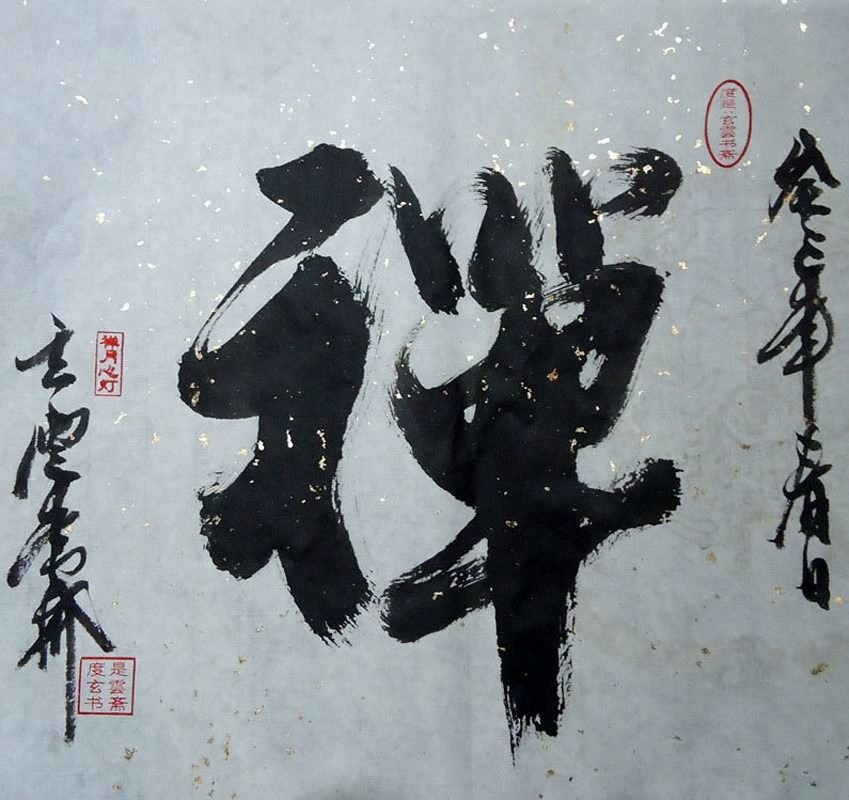 度是·玄雲书斋
癸巳年春日
禅
禅月心灯
玄雲
度是
玄雲
书斋